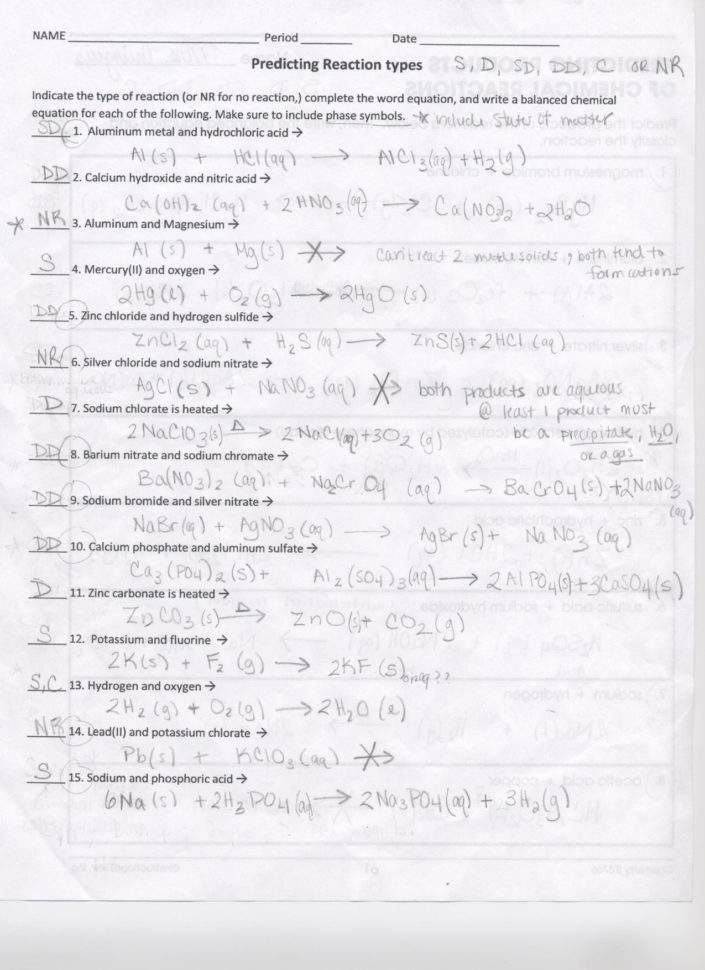 NAME ______ Period ______ Date ______
Predicting Reaction types S, D, SD, DD, C OR NR
Indicate the type of reaction (or NR for no reaction,) complete the word equation, and write a balanced chemical
equation for each of the following. Make sure to include phase symbols. * include States of matter
SD 1. Aluminum metal and hydrochloric acid →
Al(s) + HCl(aq) → AlCl3(aq) + H2(g)
DD 2. Calcium hydroxide and nitric acid →
Ca(OH)2 (aq) + 2HNO3(aq) → Ca(NO3)2 + 2H2O
* NR 3. Aluminum and Magnesium →
Al (s) + Mg(s) → can't react 2 solids, both tend to
form cations
S 4. Mercury(II) and oxygen →
2Hg(l) + O2(g) → 2HgO (s)
DD 5. Zinc chloride and hydrogen sulfide →
ZnCl2 (aq) + H2S (aq) → ZnS(s) + 2HCl (aq)
NR 6. Silver chloride and sodium nitrate →
AgCl(s) + NaNO3 (aq) → both products are aqueous
D 7. Sodium chlorate is heated → @ least 1 product must
2NaClO3(s) Δ→ 2NaCl(aq) + 3O2 (g) be a precipitate, H2O,
DD 8. Barium nitrate and sodium chromate → or a gas
Ba(NO3)2 (aq) + Na2CrO4 (aq) → BaCrO4(s) + 2NaNO3
(aq)
DD 9. Sodium bromide and silver nitrate →
NaBr(aq) + AgNO3(aq) → AgBr(s) + NaNO3 (aq)
DD 10. Calcium phosphate and aluminum sulfate →
Ca3(PO4)2(s) + Al2(SO4)3(aq) → 2AlPO4(s) + 3CaSO4(s)
D 11. Zinc carbonate is heated →
ZnCO3(s) Δ→ ZnO(s) + CO2(g)
S 12. Potassium and fluorine →
2K(s) + F2 (g) → 2KF (s) or aq??
S,C 13. Hydrogen and oxygen →
2H2(g) + O2(g) → 2H2O (l)
NR 14. Lead(II) and potassium chlorate →
Pb(s) + KClO3(aq) →
S 15. Sodium and phosphoric acid →
6Na(s) + 2H3PO4(aq) → 2Na3PO4(aq) + 3H2(g)